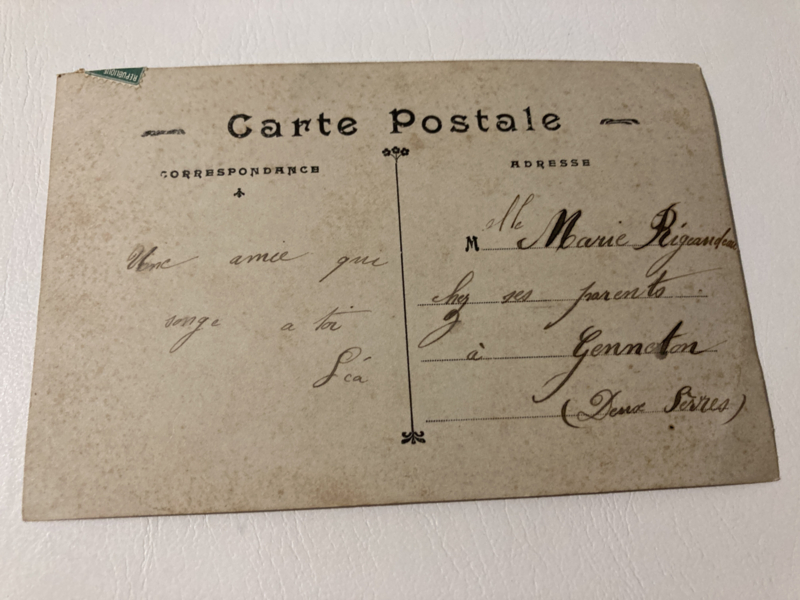 RÉPUBLIQUE
Carte Postale
CORRESPONDANCE
ADRESSE
Une amie qui
songe a toi
Léa
Melle Marie Rigeaudeau
chez ses parents.
à Genneton
(Deux Sèvres)